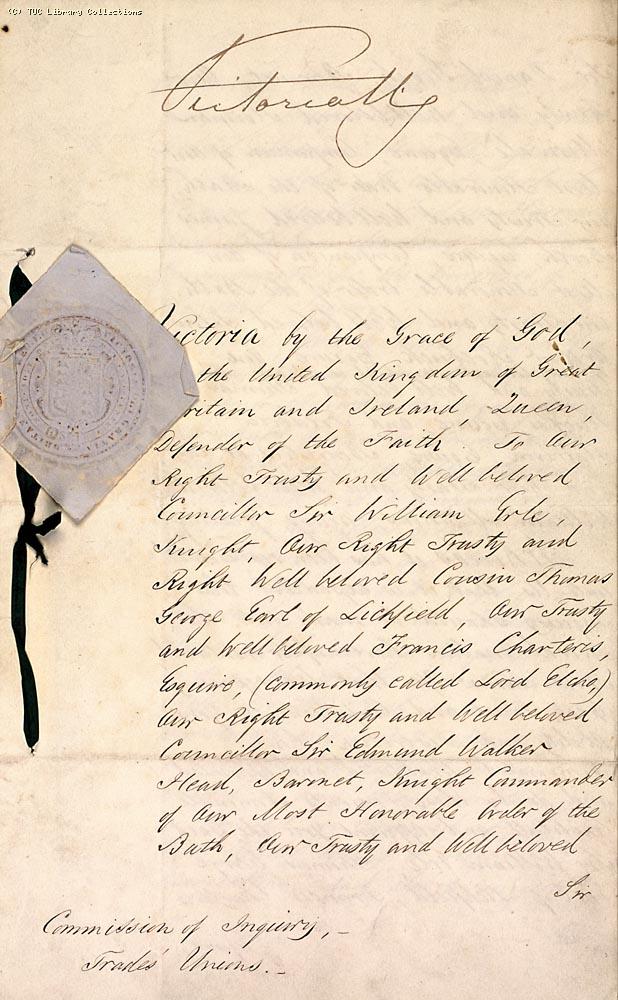 (C) TUC Library Collections
Victoria R
Victoria by the Grace of God,
the United Kingdom of Great
ritain and Ireland, Queen,
Defender of the Faith. To Our
Right Trusty and Well beloved
Councillor Sir William Erle,
Knight, Our Right Trusty and
Right Well beloved Cousin Thomas
George Earl of Lichfield, Our Trusty
and Well beloved Francis Charteris,
Esquire, (commonly called Lord Elcho,)
Our Right Trusty and Well beloved
Councillor Sir Edmund Walker
Head, Baronet, Knight Commander
of Our Most Honorable Order of the
Bath, Our Trusty and Well beloved
Sir
Commission of Inquiry, _
Trades' Unions. _